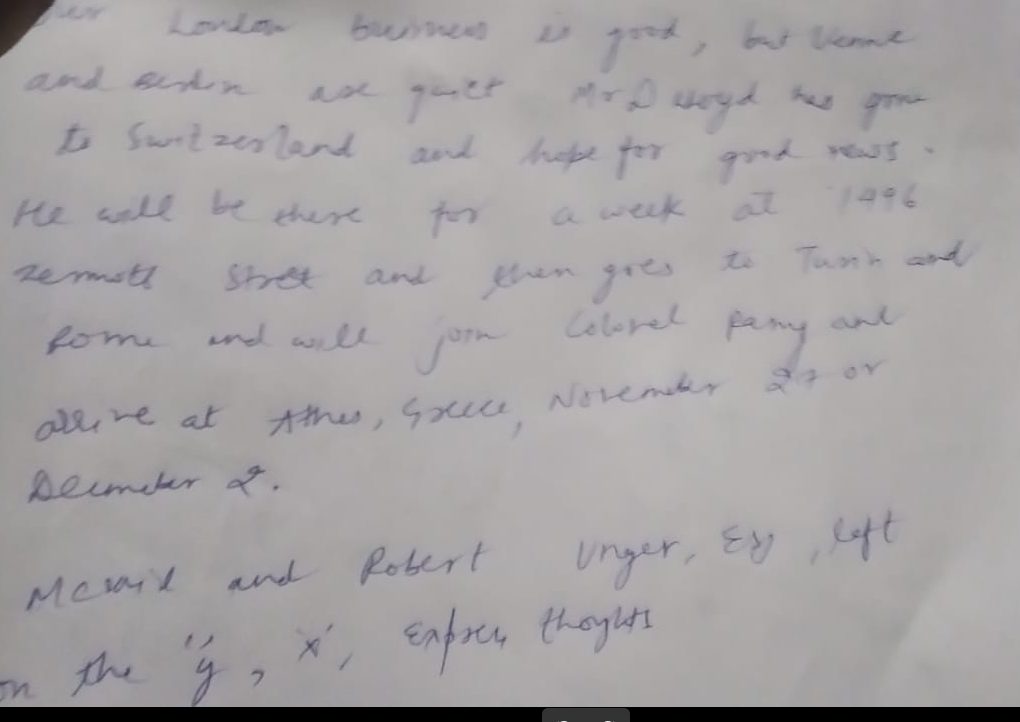 our London business is good, but Vienne
and Berlin are quiet Mr D Lloyd has gone
to Switzerland and hope for good news.
He will be there for a week at 1496
zermott Street and then goes to Turin and
Rome and will join Colonel Parny and
arrive at Athes, Greece, November 27 or
December 2.
and Robert Unger, Esq, left
on the "y, x', Express thoghts